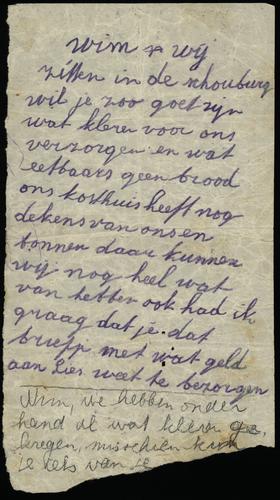 wim wij
zitten in de schouburg
wil je zoo goet zyn
wat kleren voor ons
verzorgen en wat
eetbaars geen brood
ons kosthuis heeft nog
dekens van ons en
bonnen daar kunnen
wij nog heel wat
van hebben ook had ik
graag dat je dat
briefje met wat geld
aan Lies weet te bezorgen
Wim, we hebben onder
hand al wat kleren ge
kregen, misschien
je iets van